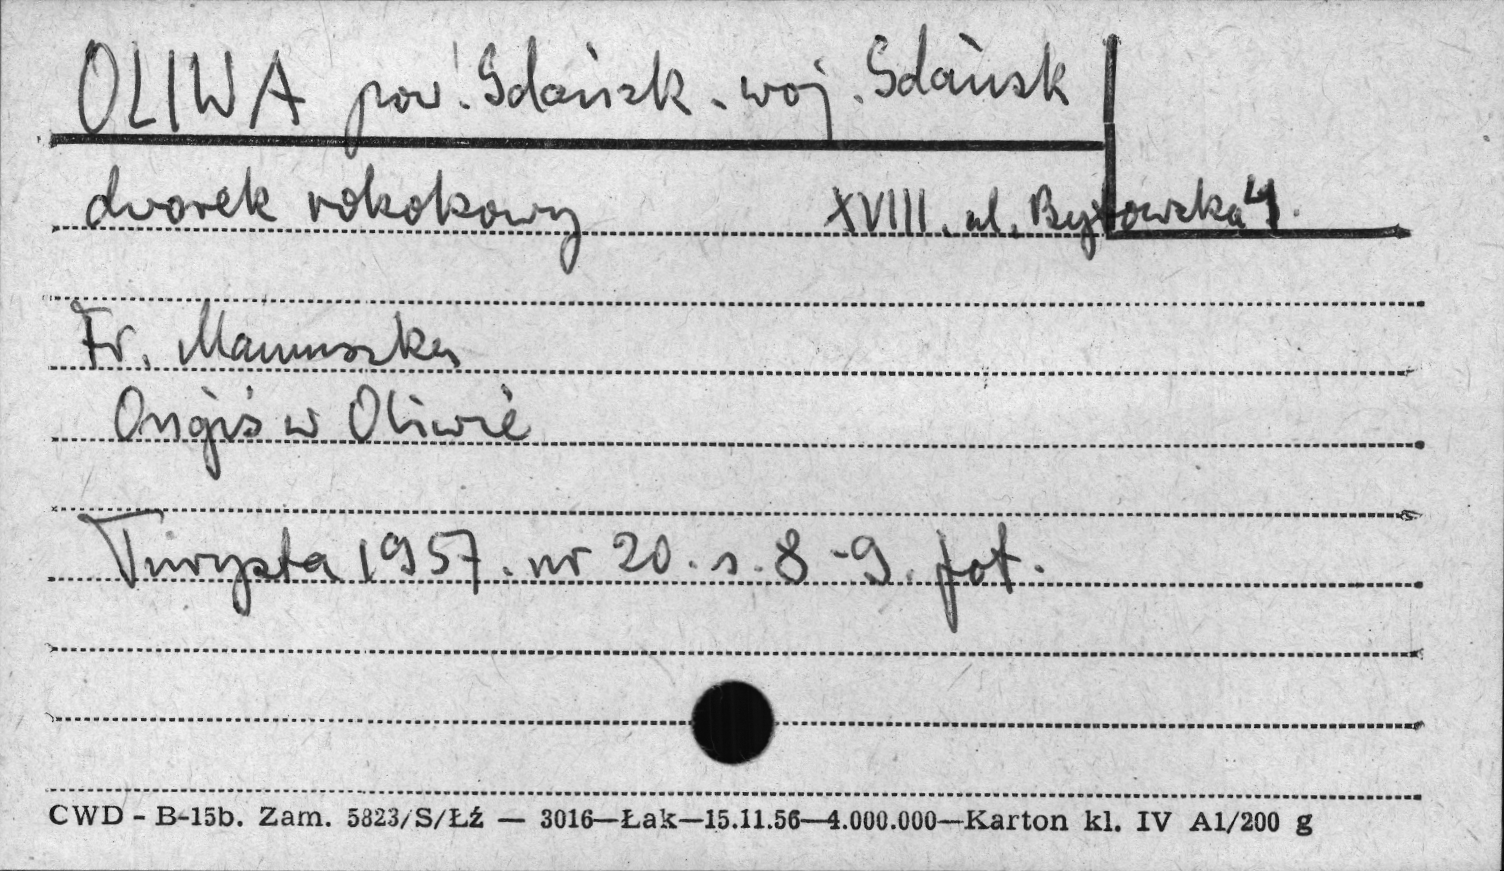 OLIWA pow. Gdańsk. woj. Gdańsk
dworek rokokowy XVIII. ul. Bytowska 4.
Fr. Mamuszka
Ongiś w Oliwie
Turysta 1957. nr 20. s. 8-9. fot.
CWD - B-15b. Zam. 5823/S/Łź — 3016—Łak—15.11.56—4.000.000—Karton kl. IV A1/200 g